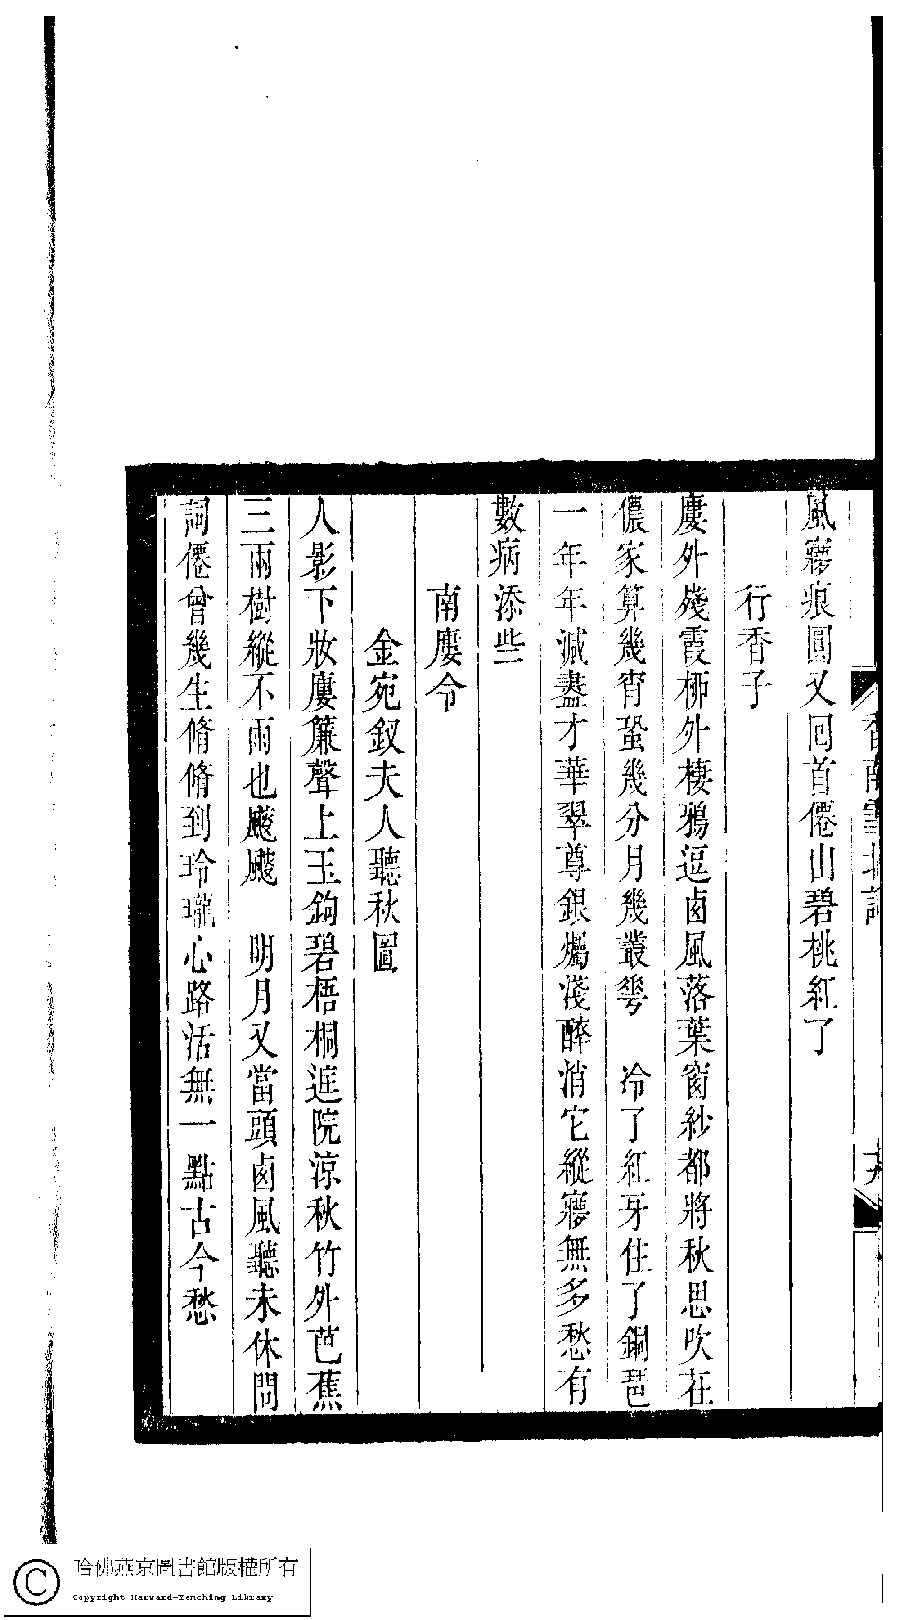 風㝱痕圓又回首僊山碧桃紅了
行香子
廔外殘霞桺外棲鴉逗卤風落葉窗紗都將秋思吹在
儂家算幾宵蛩幾分月幾叢䔢　冷了紅牙住了銅琶
一年年減盡才華翠尊銀爥淺醉消它縱㝱無多愁有
數病添些
南廔令
金宛釵夫人聽秋圖
人影下妝廔簾聲上玉鉤碧梧桐庭院涼秋竹外芭蕉
三兩樹縱不雨也颼颼　明月又當頭卤風聽未休問
詞僊曾幾生脩脩到玲瓏心路活無一點古今愁
香南雪北詞
哈佛燕京圖書館版權所有
Copyright Harvard-Yenching Library